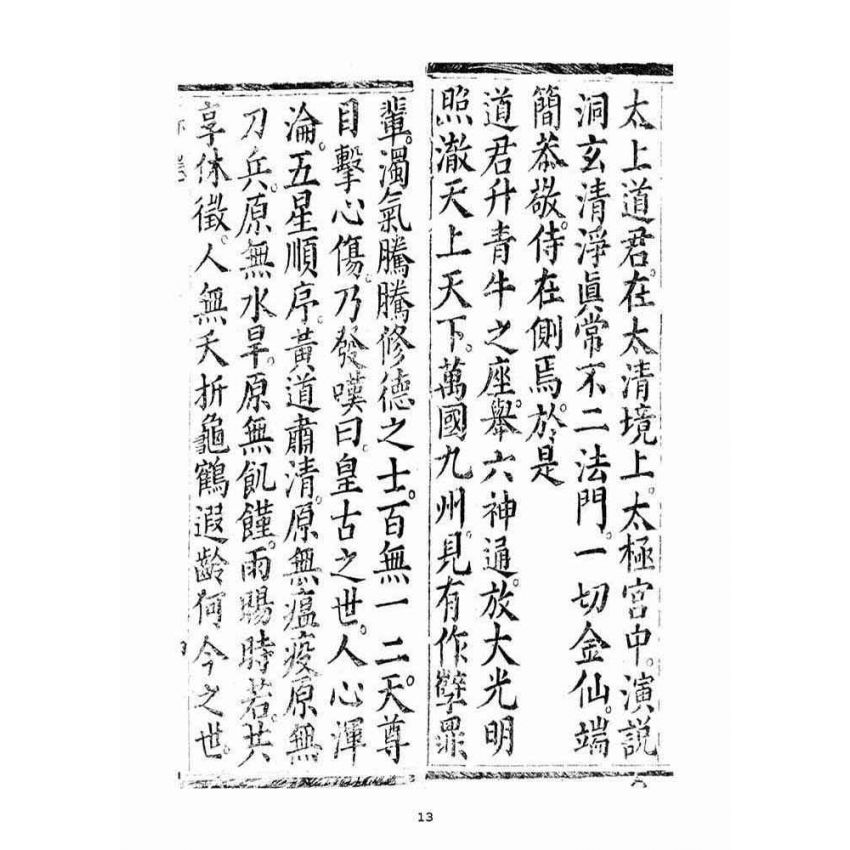 太上道君。在太清境上。太極宮中。演說
洞玄清淨眞常不二法門。一切金仙。端
簡恭敬。侍在側焉。於是
道君升青牛之座。舉六神通。放大光明
照澈天上天下。萬國九州。見有作孽罪
輩。濁氣騰騰修德之士。百無一二。天尊
目擊心傷。乃發嘆曰。皇古之世。人心渾
淪。五星順序。黃道肅清。原無瘟疫原無
刀兵。原無水旱。原無飢饉。雨暘時若。共
享休徵。人無夭折龜鶴遐齡何今之世。
13